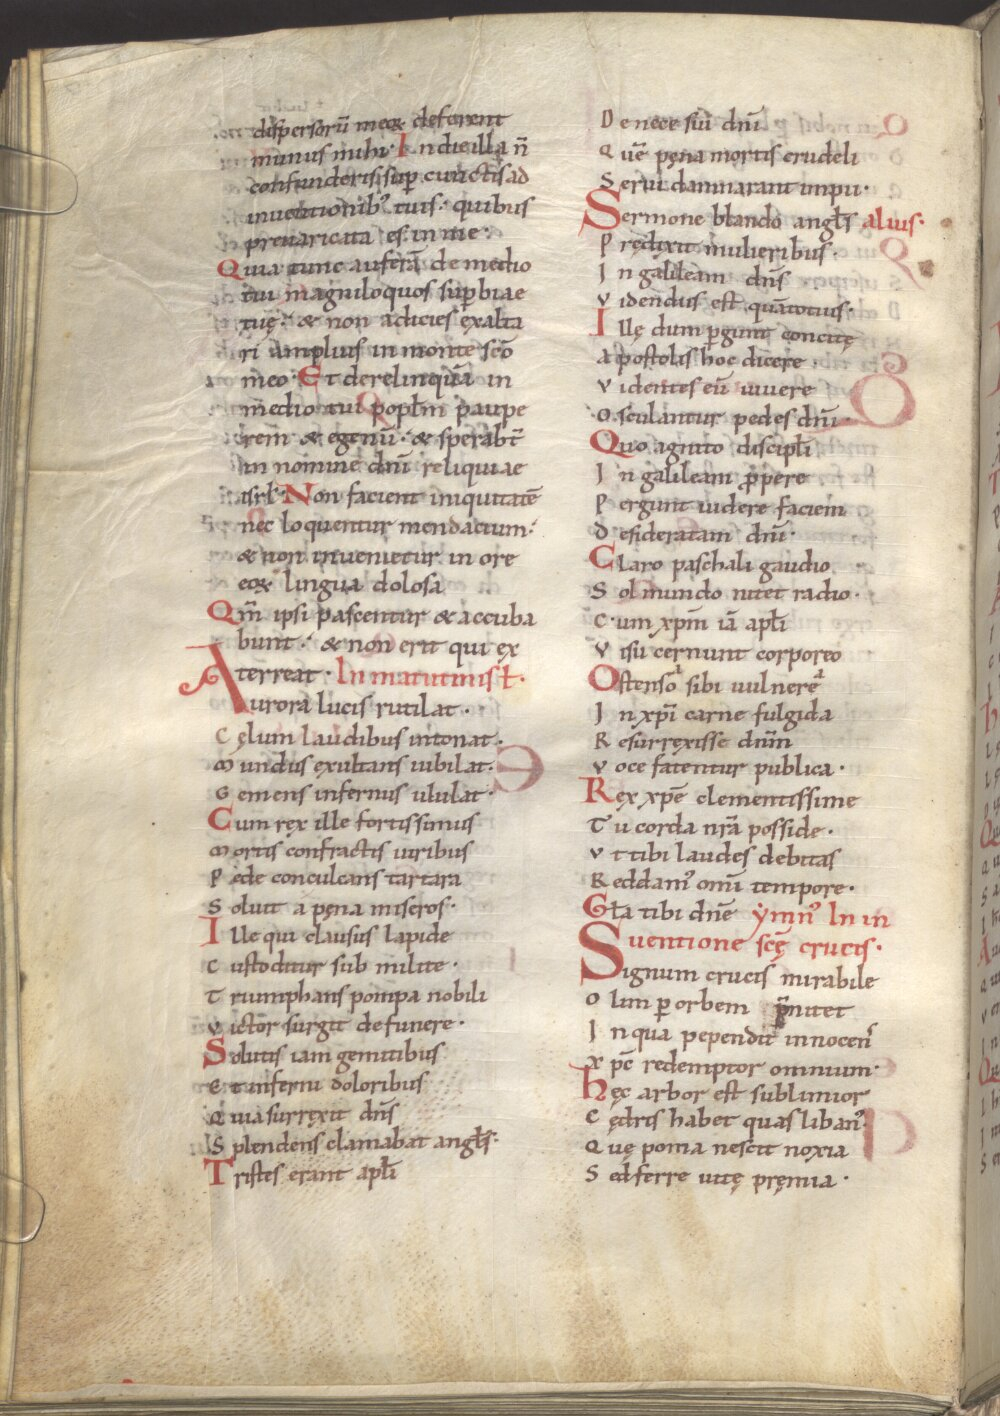 dispersorũ meoꝝ deferent
munus mihi. In die illa ñ
confunderis sup̱ cunctis ad
inuentionibꝰ tuis: quibus
preuaricata es in me.
Quia tunc auferã de medio
tui magniloquos sup̱biae
tuę: & non adicies exalta
ri amplius in monte sc̄o
meo. Et derelinquã in
medio tui popl̄m paupe
rem & egenũ: & sperabt̄
in nomine dn̄i reliquiae
isrl̄. Non facient iniquitatẽ
nec loquentur mendacium:
& non inuenietur in ore
eoꝝ lingua dolosa
Qm̄ ipsi pascentur & accuba
bunt: & non erit qui ex
terreat. In matutinis ł.
Aurora lucis rutilat.
Cęlum laudibus intonat.
Mundus exultans iubilat.
Gemens infernus ululat.
Cum rex ille fortissimus
Mortis confractis uiribus
Pede conculcans tartara
Soluit a pęna miseros.
Ille qui clausus lapide
Custoditur sub milite.
Triumphans pompa nobili
Victor surgit de funere.
Solutis iam gemitibus
Et inferni doloribus
Quia surrexit dn̄s
Splendens clamabat angl̄s.
Tristes erant apl̄i
De nece sui dn̄i
Quẽ pęna mortis crudeli
Serui damnarant impii.
Sermone blando angl̄s alius.
Predixit mulieribus.
In galileam dn̄s
Videndus est quãtotius.
Illę dum p̱gunt concitę
Apostolis hoc dicere
Videntes eũ uiuere
Osculantur pedes dn̄i.
Quo agnito discipl̄i
In galileam p̱pere
Pergunt uidere faciem
Desideratam dn̄i.
Claro paschali gaudio
Sol mundo nitet radio.
Cum xp̄m iã apl̄i
Visu cernunt corporeo
Ostenso sibi uulnere
In xp̄i carne fulgida
Resurrexisse dn̄m
Voce fatentur publica.
Rex xp̄e clementissime
Tu corda nr̄a posside.
Vt tibi laudes debitas
Reddamꝰ omi̅ tempore.
Gl̄a tibi dn̄e ymnꝰ In in
uentione scę̄ crucis.
Signum crucis mirabile
Olim p̱ orbem p̄nitet
In qua pependit innocens
Xp̄c redemptor omnium.
Hęc arbor est sublimior
Cędris habet quas libanꝰ.
Quę poma nescit noxia
Sed ferre uitę pręmia.